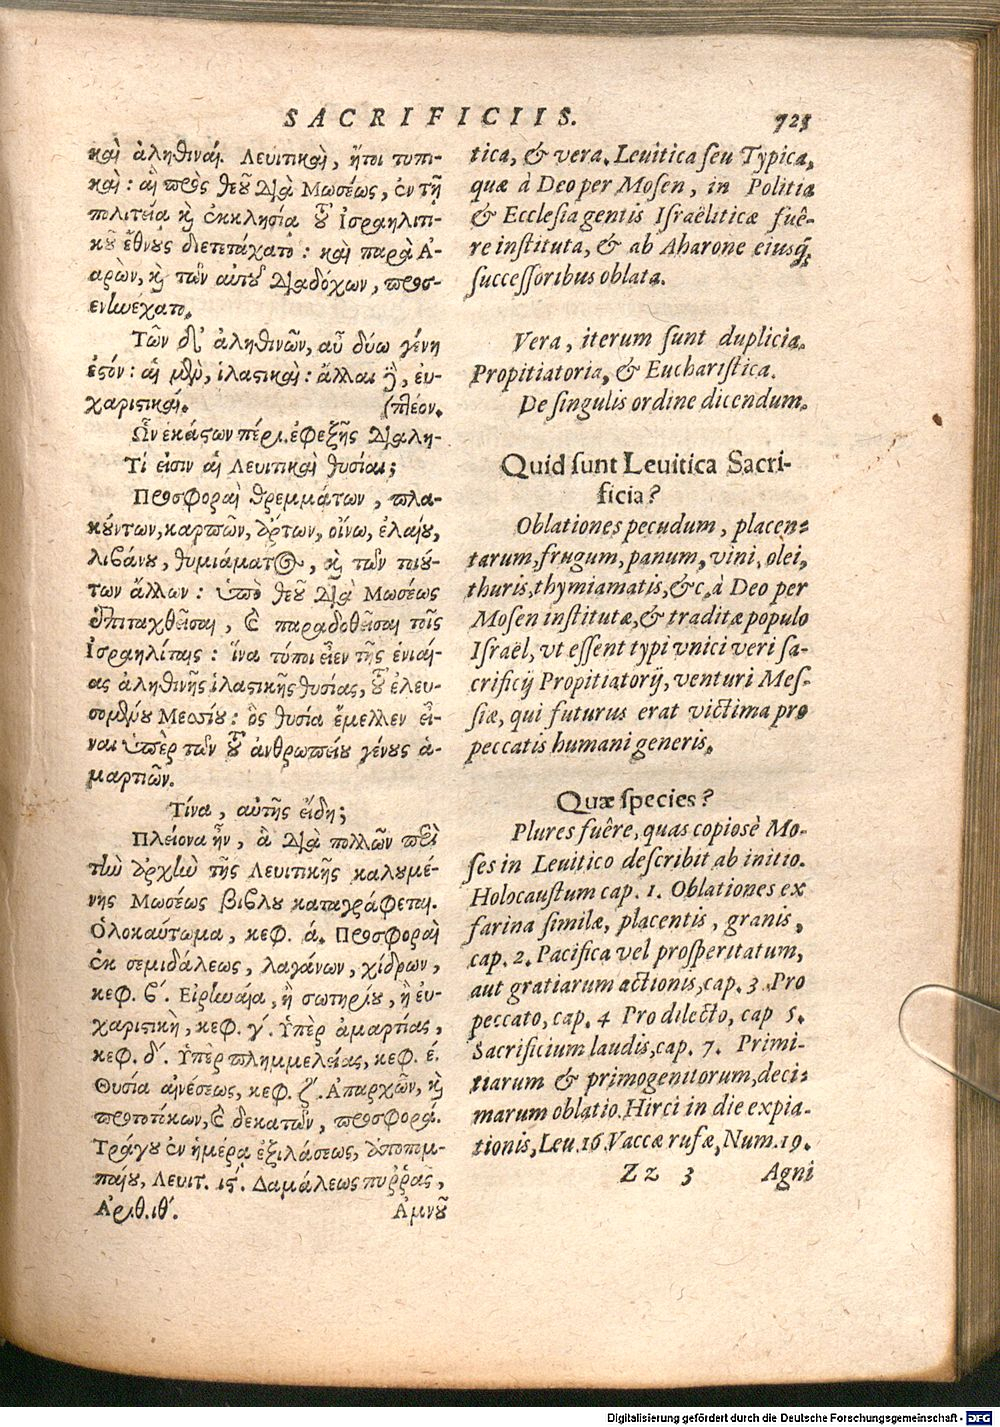 SACRIFICIIS.
725
καὶ ἀληθιναί. Λευιτικαὶ, ἤτοι τυπι-
καὶ: αἳ πρὸς θεοῦ διὰ Μωσέως, ἐν τῇ
πολιτεία καὶ ἐκκλησία τοῦ Ἰσραηλιτι-
κοῦ ἔθνους διετετάχατο: καὶ παρὰ Ἀ-
αρὼν, καὶ τῶν αὐτοῦ διαδόχων, προσ-
ενηνέχατο.
Τῶν δ' ἀληθινῶν, αὖ δύω γένη
ἐστόν: αἱ μὲν, ἱλαστικαὶ: ἄλλαι δὲ, εὐ-
χαριστικαί.
(πλέον.
Ὧν ἑκάστων πέρι ἐφεξῆς διαλη-
Τί εἰσιν αἱ Λευιτικαὶ θυσίαι;
Προσφοραὶ θρεμμάτων, πλα-
κούντων, καρπῶν, ἄρτων, οἴνω, ἐλαίου,
λιβάνου, θυμιάματος, καὶ τῶν τοιού-
των ἄλλων: ὑπὸ θεοῦ διὰ Μωσέως
ἐπιταχθεῖσαι, καὶ παραδοθεῖσαι τοῖς
Ἰσραηλίταις: ἵνα τύποι εἶεν τῆς ἑνιαί-
ας ἀληθινῆς ἱλαστικῆς θυσίας, τοῦ ἐλευ-
σομένου Μεσσίου: ὃς θυσία ἔμελλεν εἶ-
ναι ὑπὲρ τῶν τοῦ ἀνθρωπείου γένους ἁ-
μαρτιῶν.
Τίνα, αὐτῆς εἴδη;
Πλείονα ἦν, ἃ διὰ πολλῶν περὶ
τὴν ἀρχὴν τῆς Λευιτικῆς καλουμέ-
νης Μωσέως βίβλου καταγράφεται.
Ὁλοκαύτωμα, κεφ. ά. Προσφοραὶ
ἐκ σεμιδάλεως, λαγάνων, χίδρων,
κεφ. β'. Εἰρηναία, ἢ σωτηρίου, ἢ εὐ-
χαριστικὴ, κεφ. γ'. Ὑπὲρ ἁμαρτίας,
κεφ. δ'. Ὑπὲρ πλημμελείας, κεφ. έ.
Θυσία αἰνέσεως, κεφ. ζ'. Ἀπαρχῶν, καὶ
πρωτοτόκων, καὶ δεκατῶν, προσφοραί.
Τράγου ἐν ἡμέρα ἐξιλάσεως, ἀποπομ-
παίου, Λευιτ. ις'. Δαμάλεως πυῤῥᾶς,
Ἀριθ. ιθ'.
Ἀμνοῦ
tica, & vera. Leuitica seu Typica,
quæ à Deo per Mosen, in Politia
& Ecclesia gentis Israëliticæ fuê-
re instituta, & ab Aharone eiusq́;
successoribus oblata.
Vera, iterum sunt duplicia.
Propitiatoria, & Eucharistica.
De singulis ordine dicendum.
Quid sunt Leuitica Sacri-
ficia?
Oblationes pecudum, placen-
tarum, frugum, panum, vini, olei,
thuris, thymiamatis, &c. à Deo per
Mosen institutæ, & traditæ populo
Israël, vt essent typi vnici veri sa-
crificij Propitiatorij, venturi Mes-
siæ, qui futurus erat victima pro
peccatis humani generis.
Quæ species?
Plures fuêre, quas copiosè Mo-
ses in Leuitico describit ab initio.
Holocaustum cap. 1. Oblationes ex
farina similæ, placentis, granis,
cap. 2. Pacifica vel prosperitatum,
aut gratiarum actionis, cap. 3. Pro
peccato, cap. 4 Pro delicto, cap 5.
Sacrificium laudis, cap. 7. Primi-
tiarum & primogenitorum, deci-
marum oblatio. Hirci in die expia-
tionis, Leu. 16. Vaccæ rufæ, Num. 19.
Zz 3
Agni
Digitalisierung gefördert durch die Deutsche Forschungsgemeinschaft - DFG